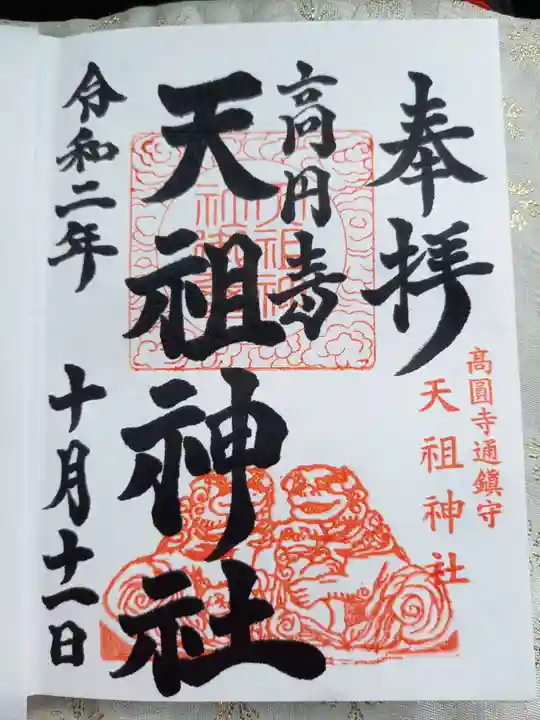 奉拝
髙圓寺通鎮守
天祖神社
高円寺
天祖神社
令和二年 十月十一日